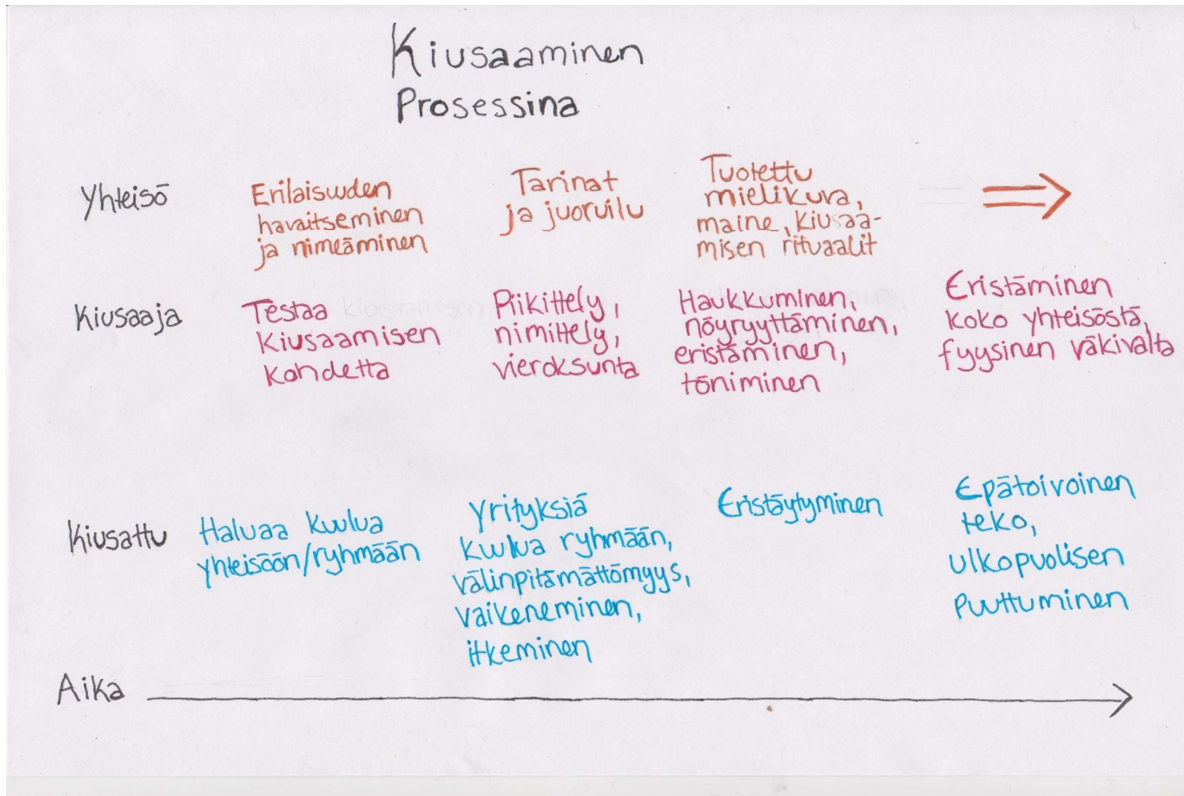 Kiusaaminen
Prosessina
Yhteisö
Erilaisuuden
havaitseminen
ja nimeäminen
Tarinat
ja juoruilu
Tuotettu
mielikuva,
maine, kiusaa-
misen rituaalit
Kiusaaja
Testaa
kiusaamisen
kohdetta
Piikittely,
nimittely,
vieroksunta
Haukkuminen,
nöyryyttäminen,
eristäminen,
töniminen
Eristäminen
koko yhteisöstä,
fyysinen väkivalta
Kiusattu
Haluaa kuulua
yhteisöön/ryhmään
Yrityksiä
kuulua ryhmään,
välinpitämättömyys,
vaikeneminen,
itkeminen
Eristäytyminen
Epätoivoinen
teko,
ulkopuolisen
puuttuminen
Aika